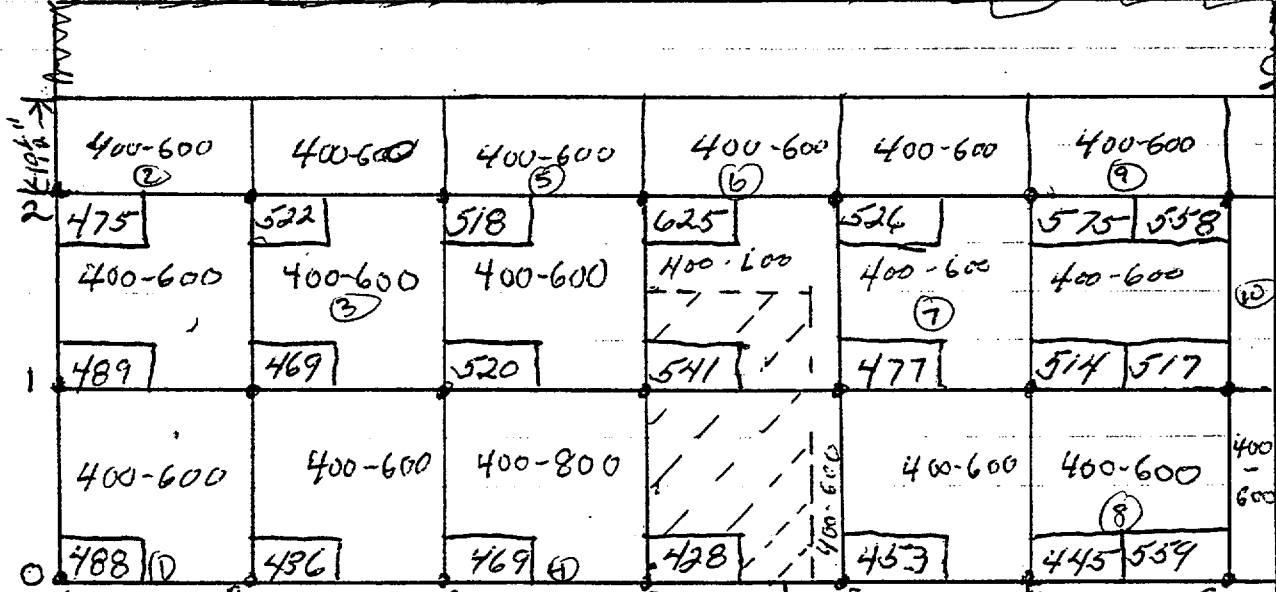 400-600 400-600 400-600 400-600 400-600 400-600
② ⑤ ⑥ ⑨
2 475 522 518 625 526 575 558
400-600 400-600 400-600 400-600 400-600 400-600
③ ⑦ ⑩
1 489 469 520 541 477 514 517
400-600 400-600 400-800 400-600 400-600 400-600 400-600
⑧
0 488 ① 436 469 ④ 428 453 445 559